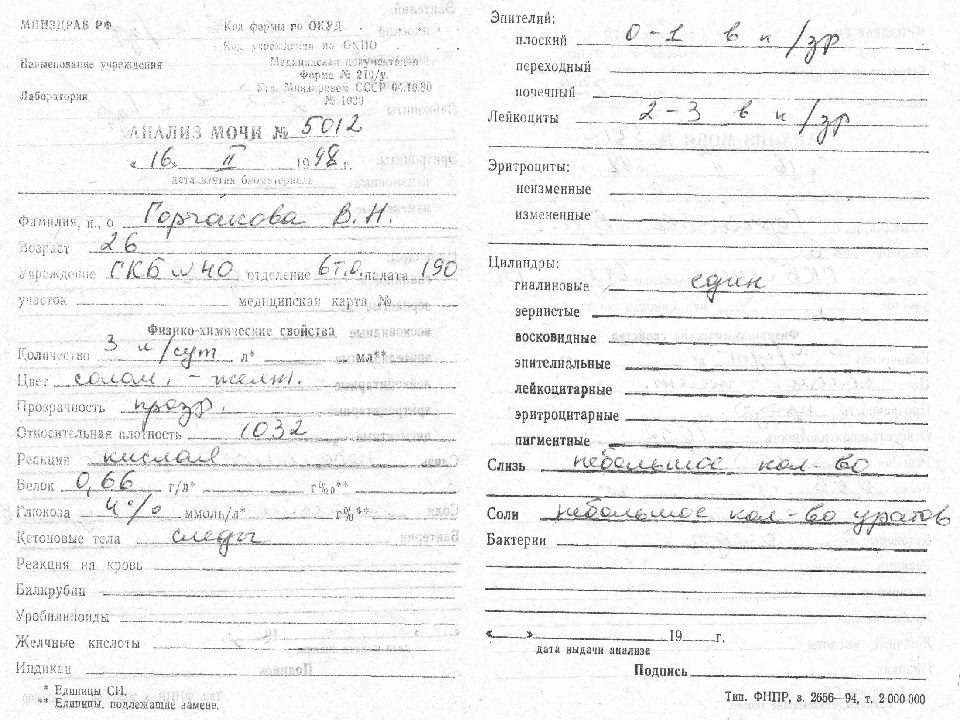 МИНЗДРАВ РФ
Код формы по ОКУД
Код учреждения по ОКПО
Наименование учреждения
Медицинская документация
Форма № 210/у.
Утв. Минздравом СССР 04.10.80
Лаборатория
№ 1030
АНАЛИЗ МОЧИ № 5012
«16» II 1998 г.
дата взятия биоматериала
Фамилия, и., о Горчакова В.Н.
Возраст 26
Учреждение ГКБ №40 отделение 6т.о. палата 190
участок медицинская карта №
Физико-химические свойства
Количество 3 л/сут л* мл**
Цвет солом. - желт.
Прозрачность прозр.
Относительная плотность 1032
Реакция кислая
Белок 0,66 г/л* г‰**
Глюкоза 4% ммоль/л* г%**
Кетоновые тела следы
Реакция на кровь
Билирубин
Уробилиноиды
Желчные кислоты
Индикан
* Единицы СИ.
** Единицы, подлежащие замене.
Эпителий:
плоский 0-1 в п/зр
переходный
почечный
Лейкоциты 2-3 в п/зр
Эритроциты:
неизменные
измененные
Цилиндры:
гиалиновые един
зернистые
восковидные
эпителиальные
лейкоцитарные
эритроцитарные
пигментные
Слизь небольшое кол-во
Соли небольшое кол-во уратов
Бактерии
« » 19 г.
дата выдачи анализа
Подпись
Тип. ФНПР, з. 2656—94, т. 2 000 000